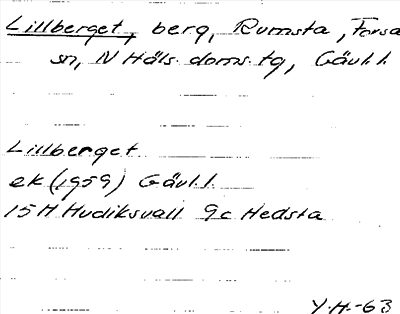 Lillberget, berg, Rumsta, Forsa
sn, N Häls. doms. tg, Gävl.l.
Lillberget
ek (1959) Gävl.l.
15H Hudiksvall 9c Hedsta
Y.H.-63